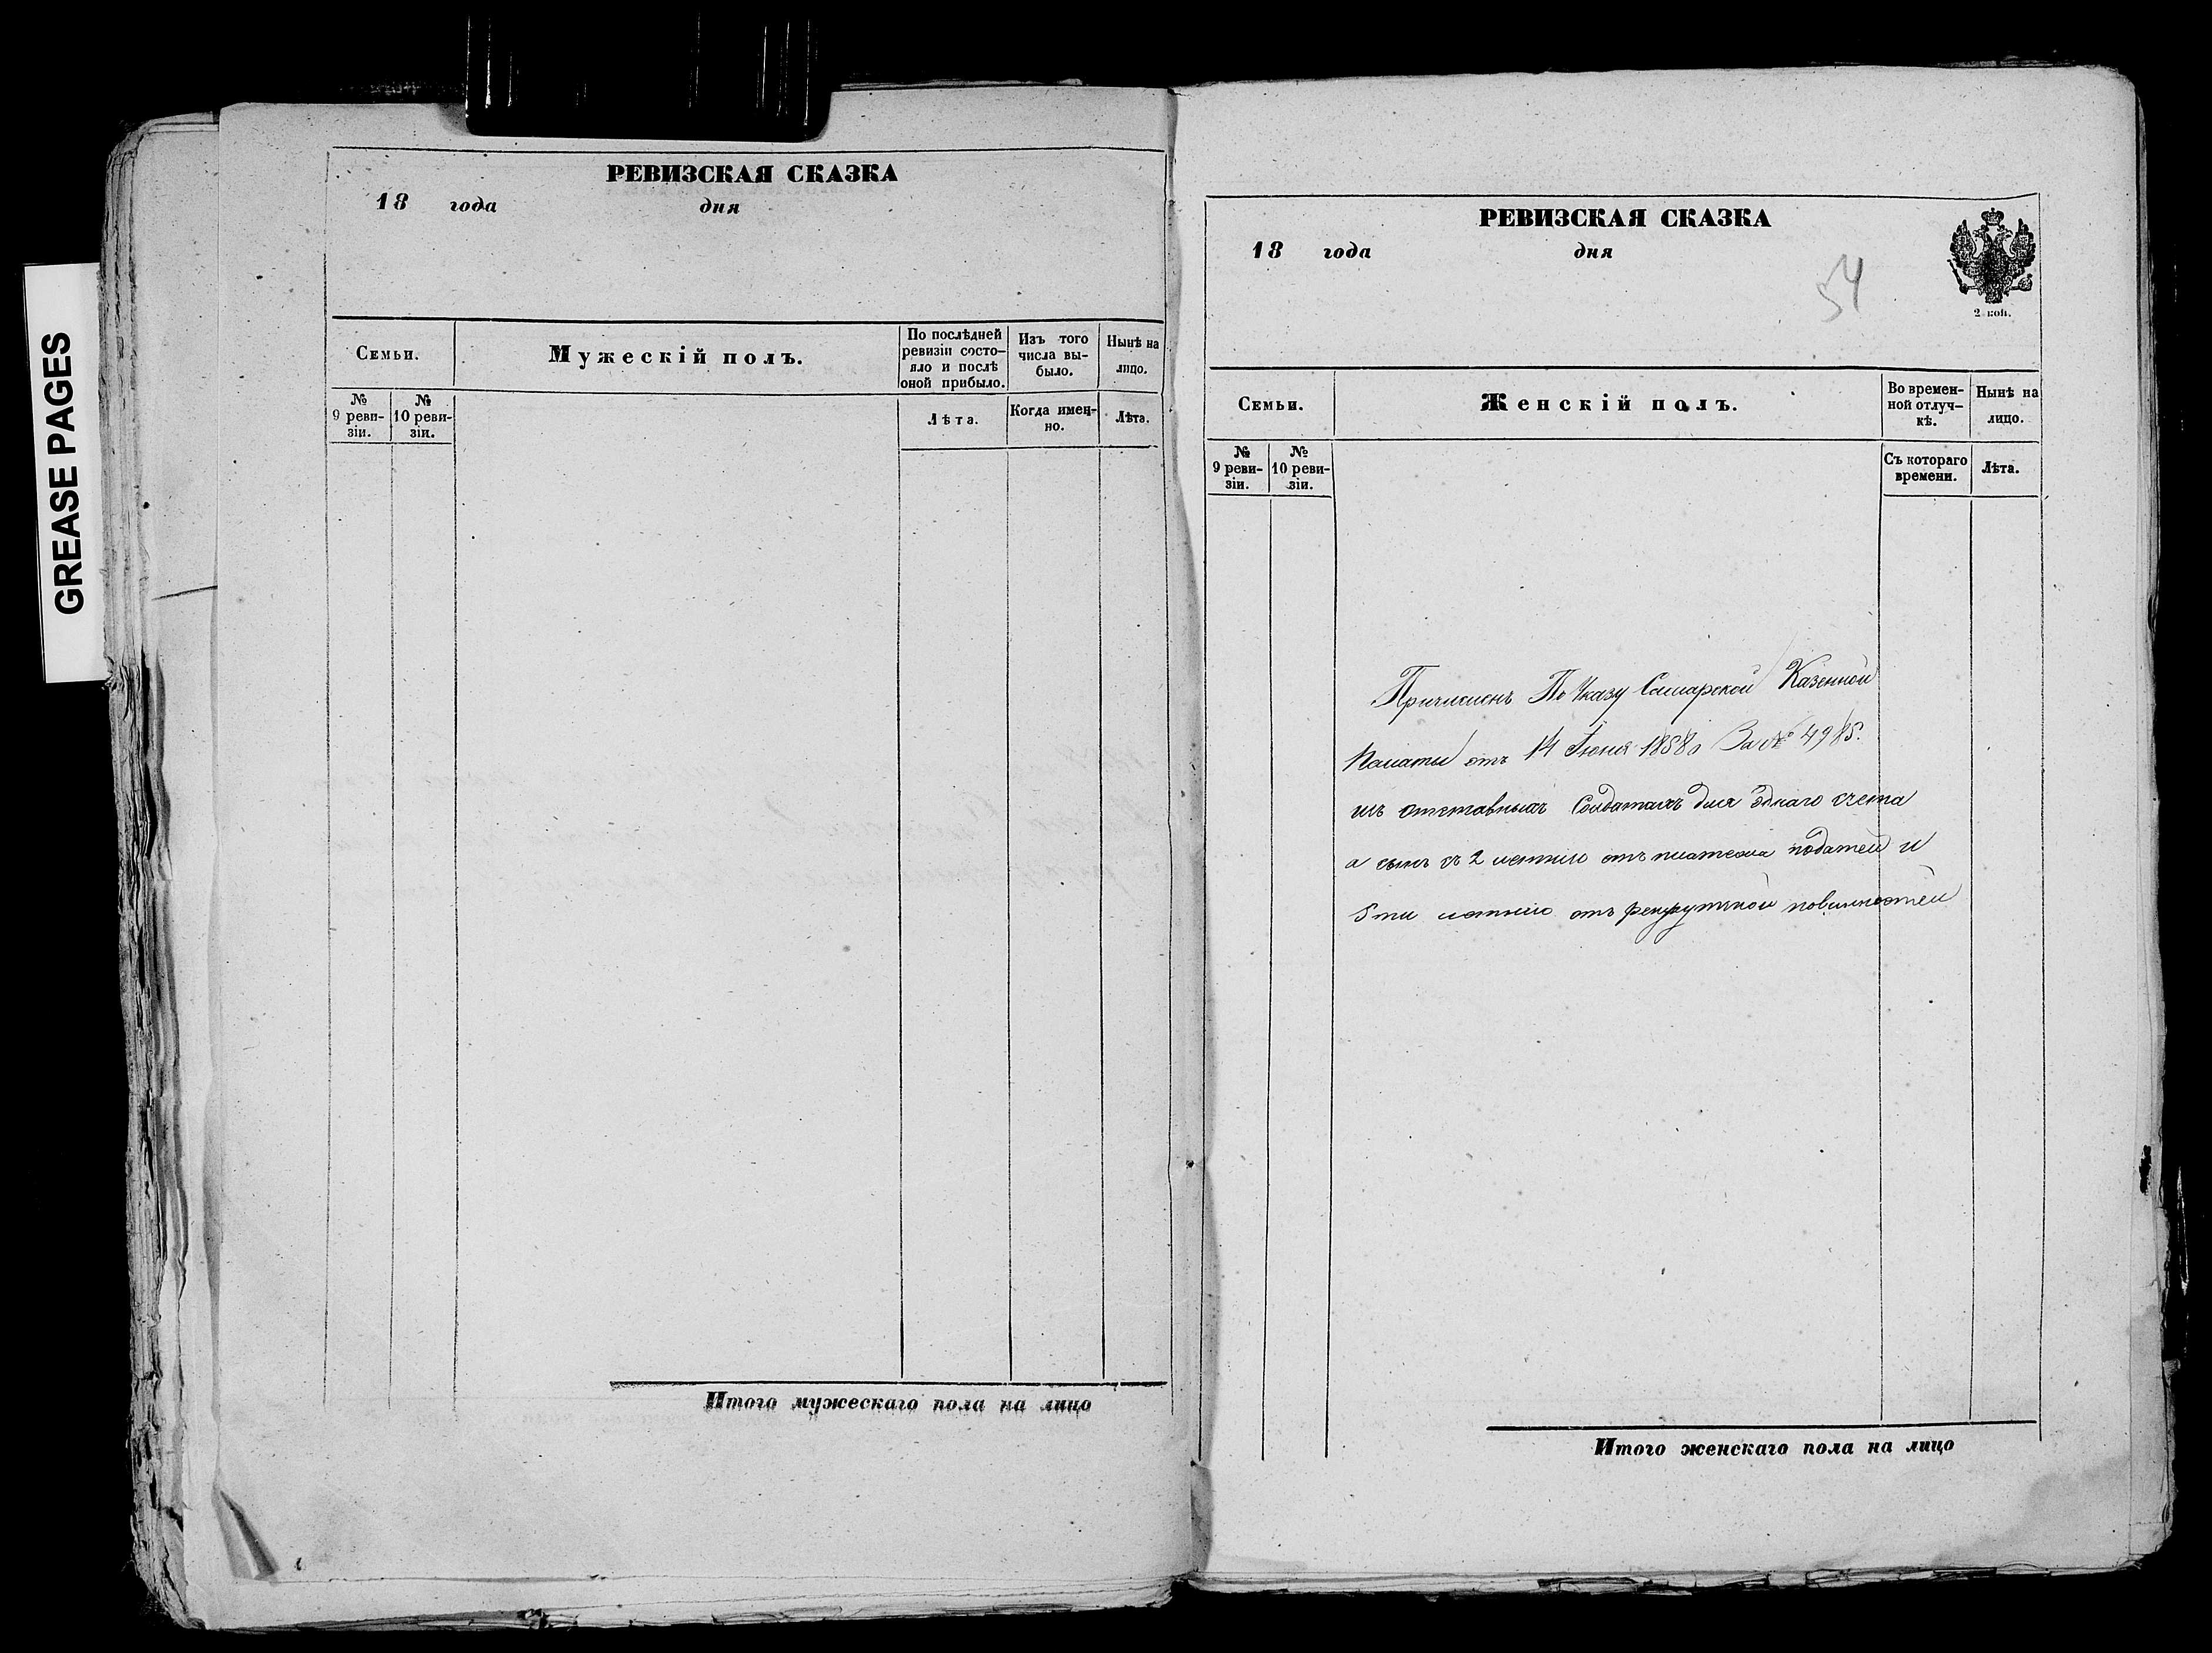 GREASE PAGES
РЕВИЗСКАЯ СКАЗКА
18 года дня
Семьи.
Мужескій полъ.
По послѣдней ревизіи состо-
яло и послѣ оной прибыло.
Изъ того числа вы-
было.
Нынѣ на лицо.
№ 9 реви-
зіи.
№ 10 реви-
зіи.
Лѣта.
Когда имен-
но.
Лѣта.
Итого мужескаго пола на лицо
РЕВИЗСКАЯ СКАЗКА
18 года дня
54
2 коп.
Семьи.
Женскій полъ.
Во времен-
ной отлуч-
кѣ.
Нынѣ на лицо.
№ 9 реви-
зіи.
№ 10 реви-
зіи.
Съ котораго времени.
Лѣта.
Причисленъ По Указу Самарской Казенной
Палаты отъ 14 Июня 1858 За № 4985.
изъ отставныхъ Солдатахъ для однаго счета
а сынъ съ 2 летнею отъ платежа податей и
5ти летнею отъ рекрутской повинностей
Итого женскаго пола на лицо